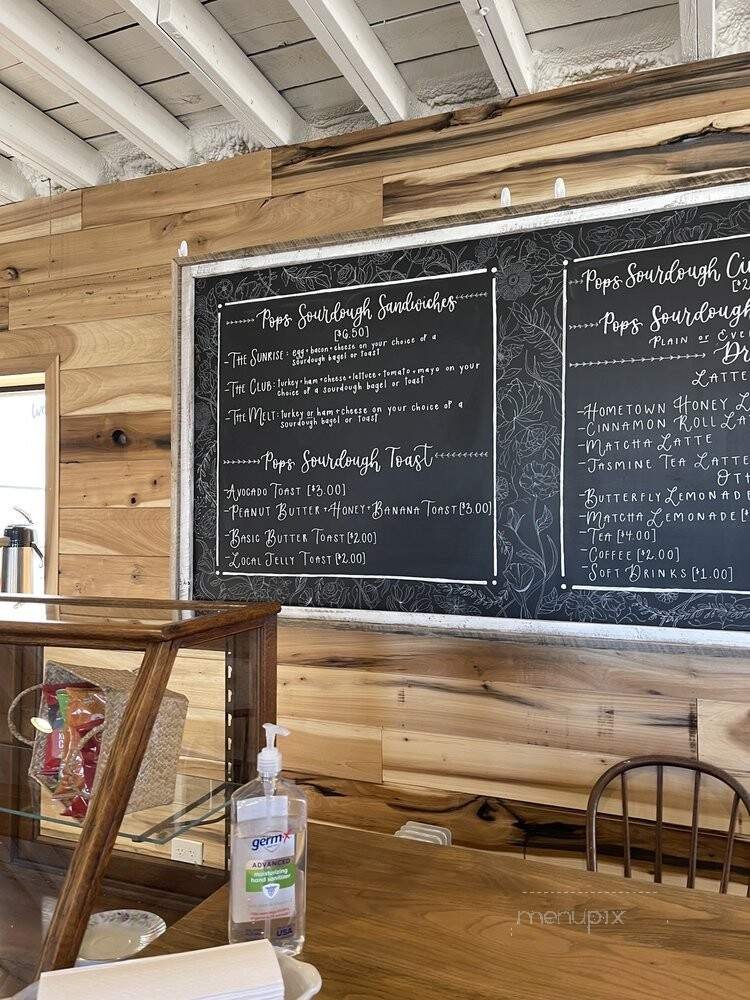 Pops Sourdough Sandwiches
[$6.50]
-The Sunrise: egg+bacon+cheese on your choice of a
sourdough bagel or toast
-The Club: turkey+ham+cheese+lettuce+tomato+mayo on your
choice of a sourdough bagel or toast
-The Melt: turkey or ham+cheese on your choice of a
sourdough bagel or toast
Pops Sourdough Toast
-Avocado Toast [$3.00]
-Peanut Butter+Honey+Banana Toast [$3.00]
-Basic Butter Toast [$2.00]
-Local Jelly Toast [$2.00]
Pops Sourdough Ci
[$2
Pops Sourdough
Plain or Eve
Dr
Latte
-Hometown Honey L
-Cinnamon Roll La
-Matcha Latte
-Jasmine Tea Latte
Oth
-Butterfly Lemonad
-Matcha Lemonade [$
-Tea [$4.00]
-Coffee [$2.00]
-Soft Drinks [$1.00]
germ-x
ADVANCED
moisturizing
hand sanitizer
USA
menupix